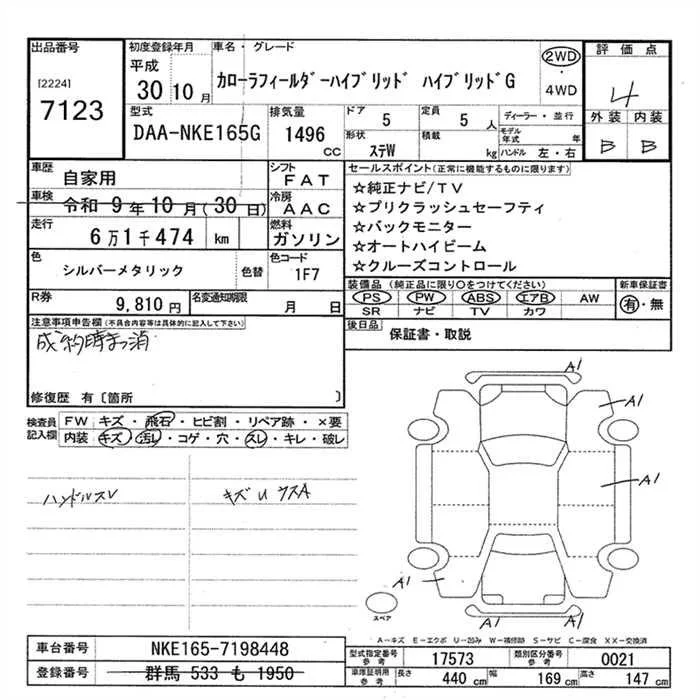 出品番号 初度登録年月 車名・グレード 2WD 評価点
[2224] 平成 カローラフィールダーハイブリッド ハイブリッドG ・ 4
7123 30年10月 4WD
型式 排気量 ドア 定員 ディーラー・並行 外装 内装
DAA-NKE165G 1496 CC 5 5人 モデル年式 年 B B
形状 ステW 積載 kg ハンドル 左・右
車歴 自家用 シフト FAT セールスポイント(正常に機能するものに限ります)
車検 令和 9年10月(30日) 冷房 AAC ☆純正ナビ/TV
☆プリクラッシュセーフティ
走行 6万1千474 km 燃料 ガソリン ☆バックモニター
☆オートハイビーム
色 シルバーメタリック 色替 色コード 1F7 ☆クルーズコントロール
R券 9,810円 名変通知期限 月 日 装備品(純正品に限り○をつけてください) 新車保証書
PS PW ABS エアB AW 有・無
SR ナビ TV カワ
注意事項申告欄(不具合内容等は具体的に記入して下さい) 後日品 保証書・取説
成約時まっ消
修復歴 有〔箇所 〕
検査員記入欄 FW キズ・飛石・ヒビ割・リペア跡・×要
内装 キズ・汚レ・コゲ・穴・スレ・キレ・破レ
ハンドルスレ キズU ウスA
A1
A1
A1
A1
A1 A1
スペア
A-キズ E-エクボ U-凹み W-補修跡 S-サビ C-腐食 XX-交換済
車台番号 NKE165-7198448 型式指定番号 参考 17573 類別区分番号 参考 0021
登録番号 群馬 533 も 1950 車庫証明用 参考 長さ 440 cm 幅 169 cm 高さ 147 cm